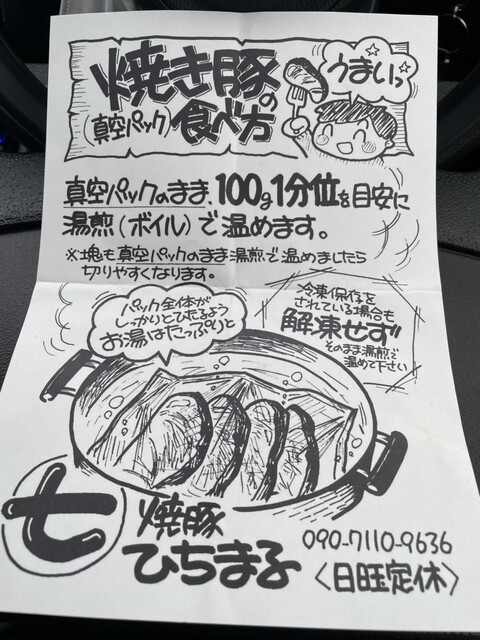 焼き豚の
(真空パック)食べ方
うまいっ
真空パックのまま、100g1分位を目安に
湯煎(ボイル)で温めます。
※塊も真空パックのまま湯煎で温めましたら
切りやすくなります。
パック全体が
しっかりとひたるよう
お湯はたっぷりと
冷凍保存を
されている場合も
解凍せず
そのまま湯煎で
温めて下さい
七
焼豚
ひちまる
090-7110-9636
<日曜定休>